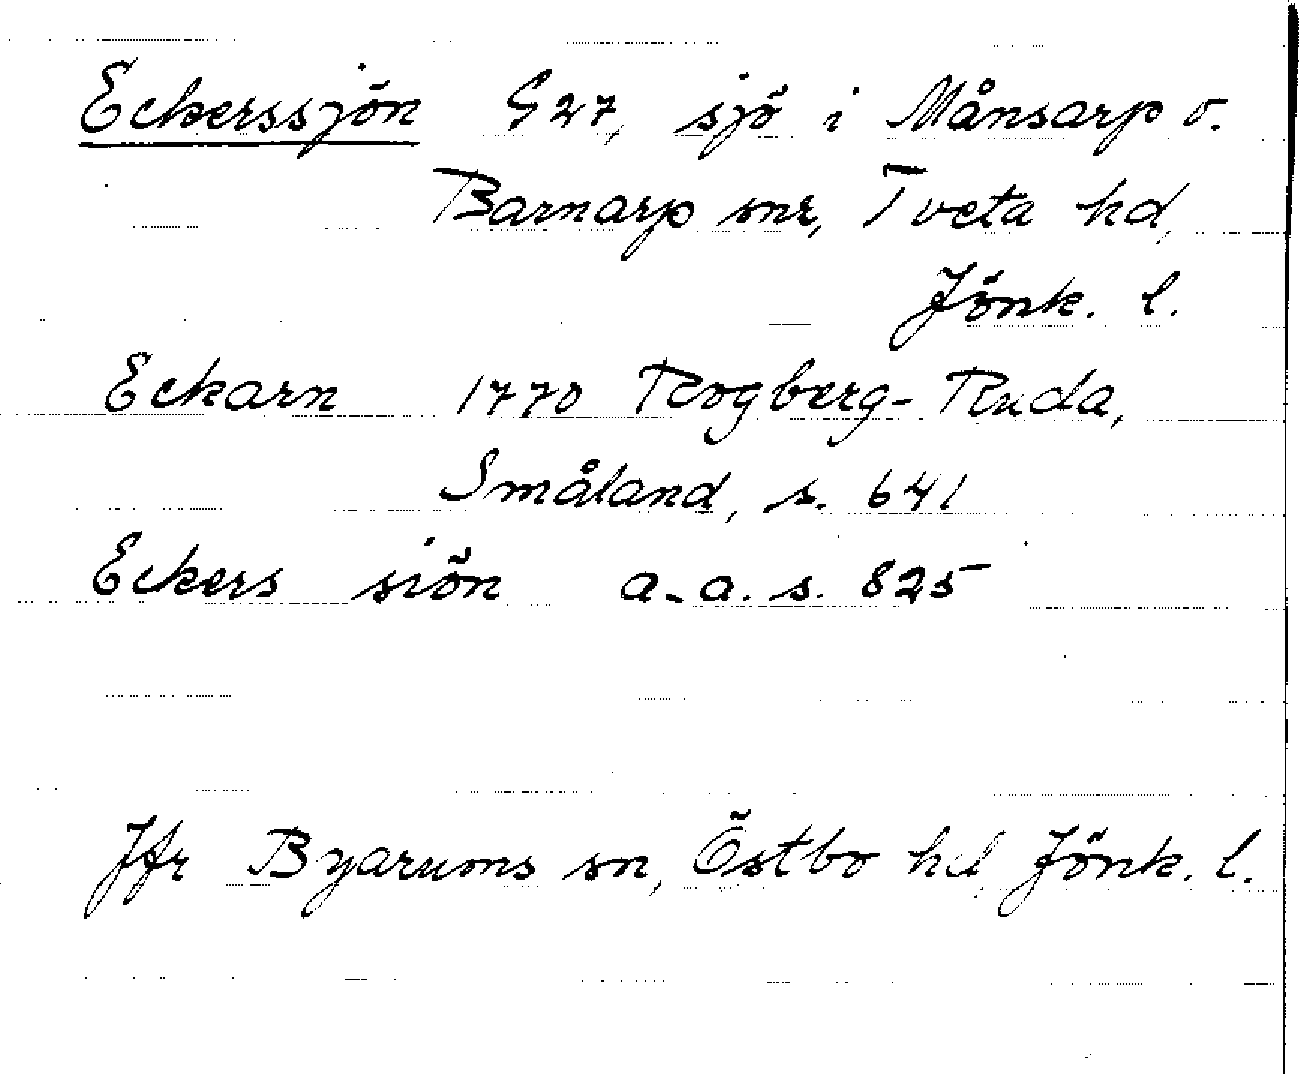 Eckerssjön G27, sjö i Månsarp o.
Barnarp snr, Tveta hd,
Jönk. l.
Eckarn 1770 Rogberg-Ruda,
Småland, s. 641
Eckers siön a.a. s. 825
Jfr Byarums sn, Östbo hd, Jönk. l.